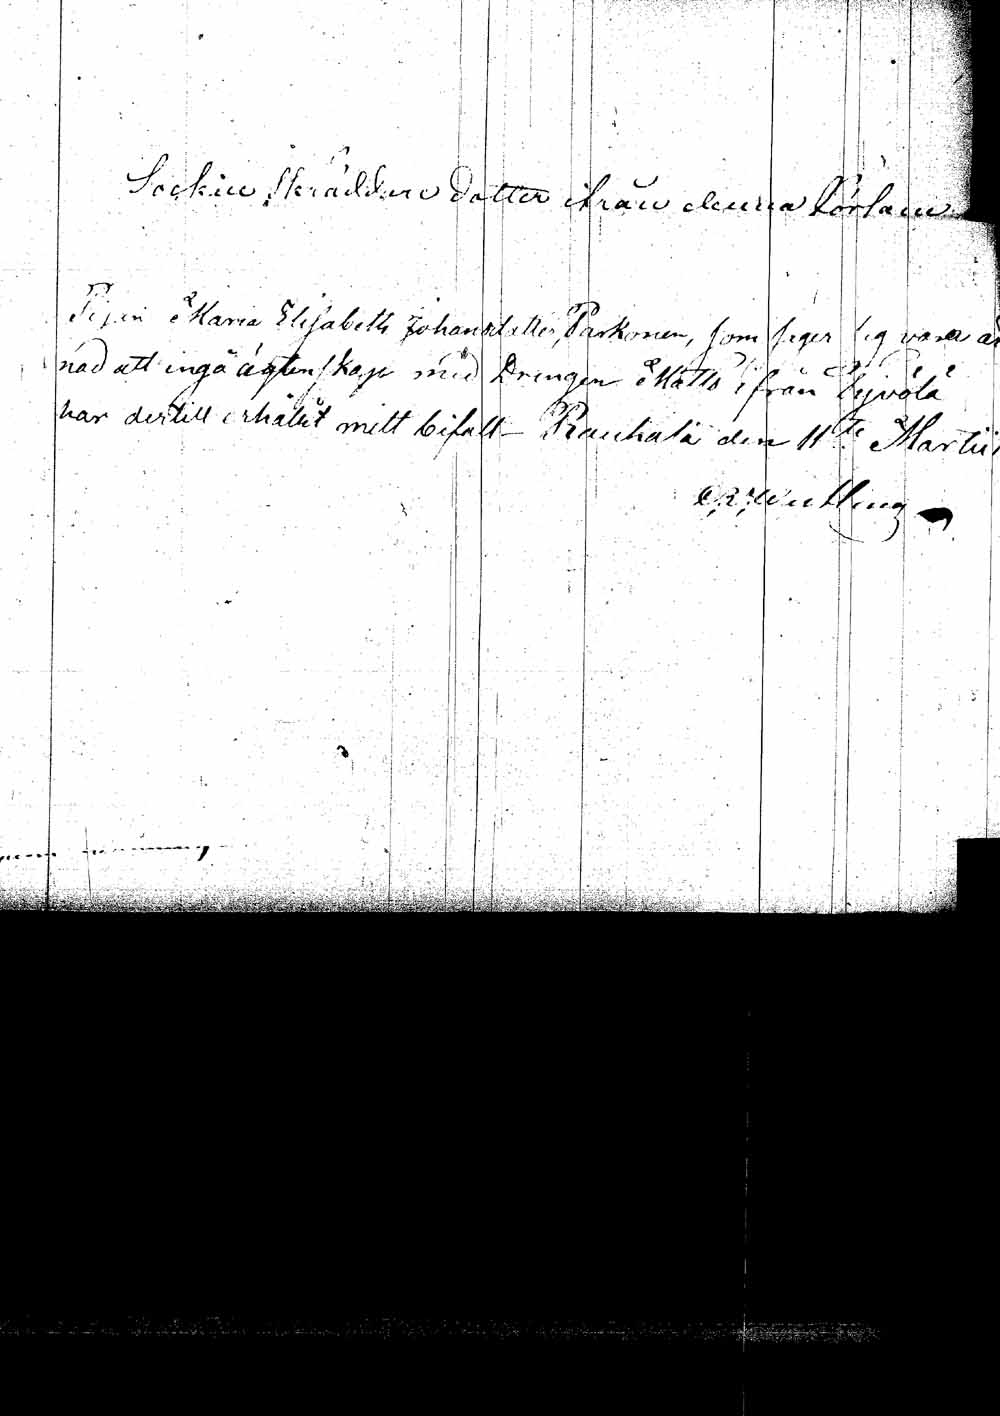 Sockne Skräddare dotter ifrån denna Församl
Pigan Maria Elisabeth Johansdotter Parkonen, som säger sig vara är
nad att ingå ägtenskap med Drengen Matts ifrån
har dertill erhållit mitt bifall – Rauhala den 11te Martii